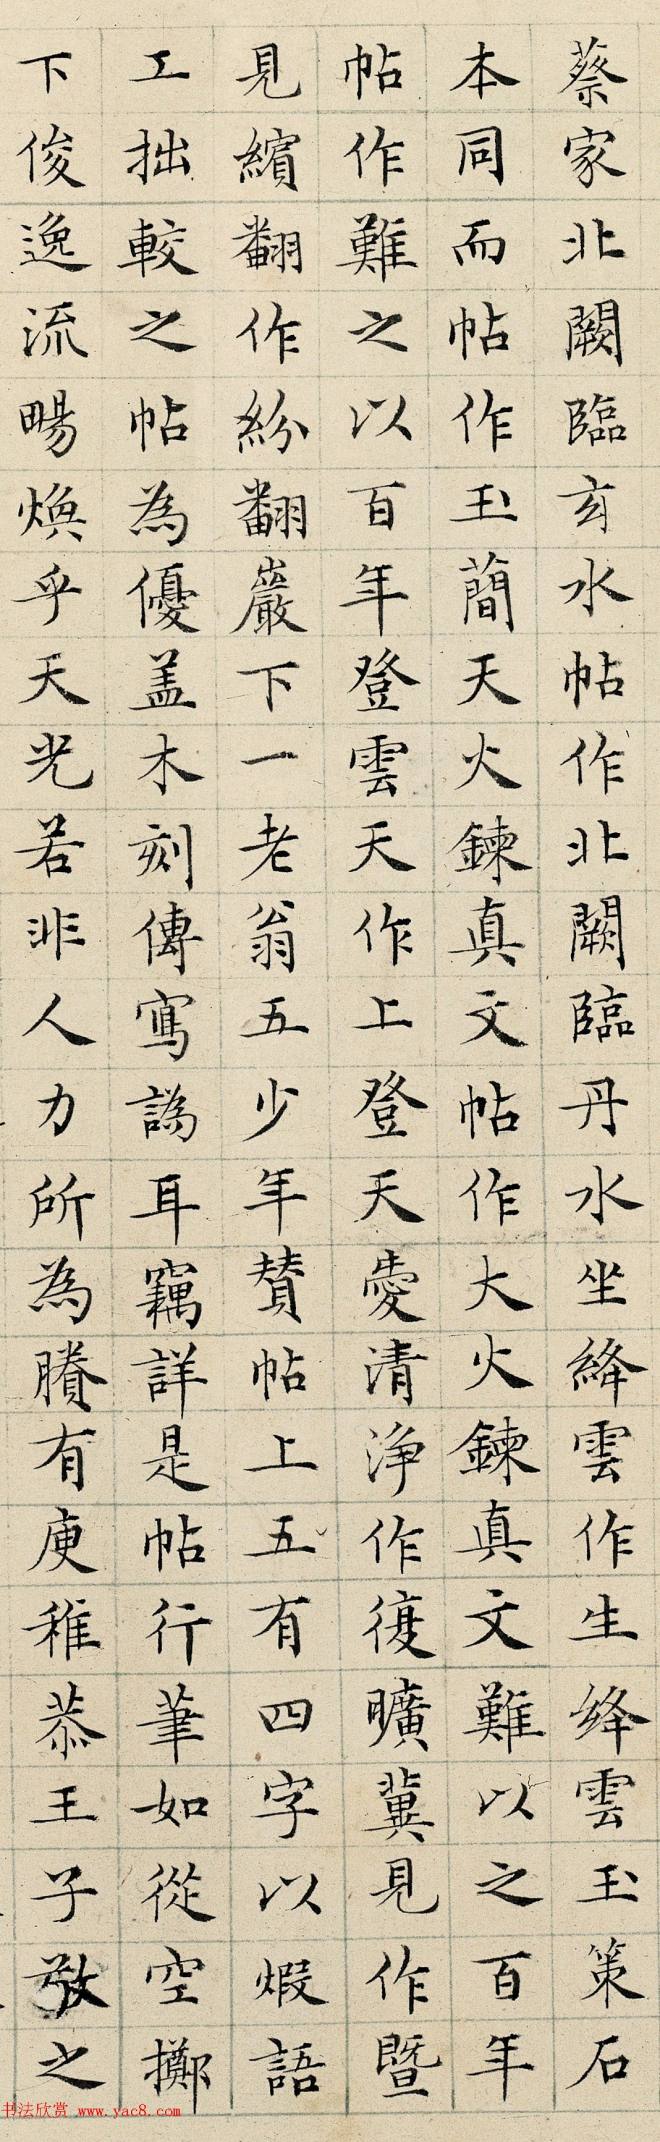 蔡家北闕臨玄水帖作北闕臨丹水坐絳雲作生絳雲玉策石
本同而帖作玉蕑天火鍊真文帖作大火鍊真文難以之百年
帖作難之以百年登雲天作上登天愛清淨作復曠冀見作暨
見繽翻作紛翻巖下一老翁五少年賛帖上五有四字以煆語
工拙較之帖為優盖木刻傳寫譌耳竊詳是帖行筆如從空擲
下俊逸流暢煥乎天光若非人力所為賸有庾稚恭王子敬之
书法欣赏 www.yac8.com